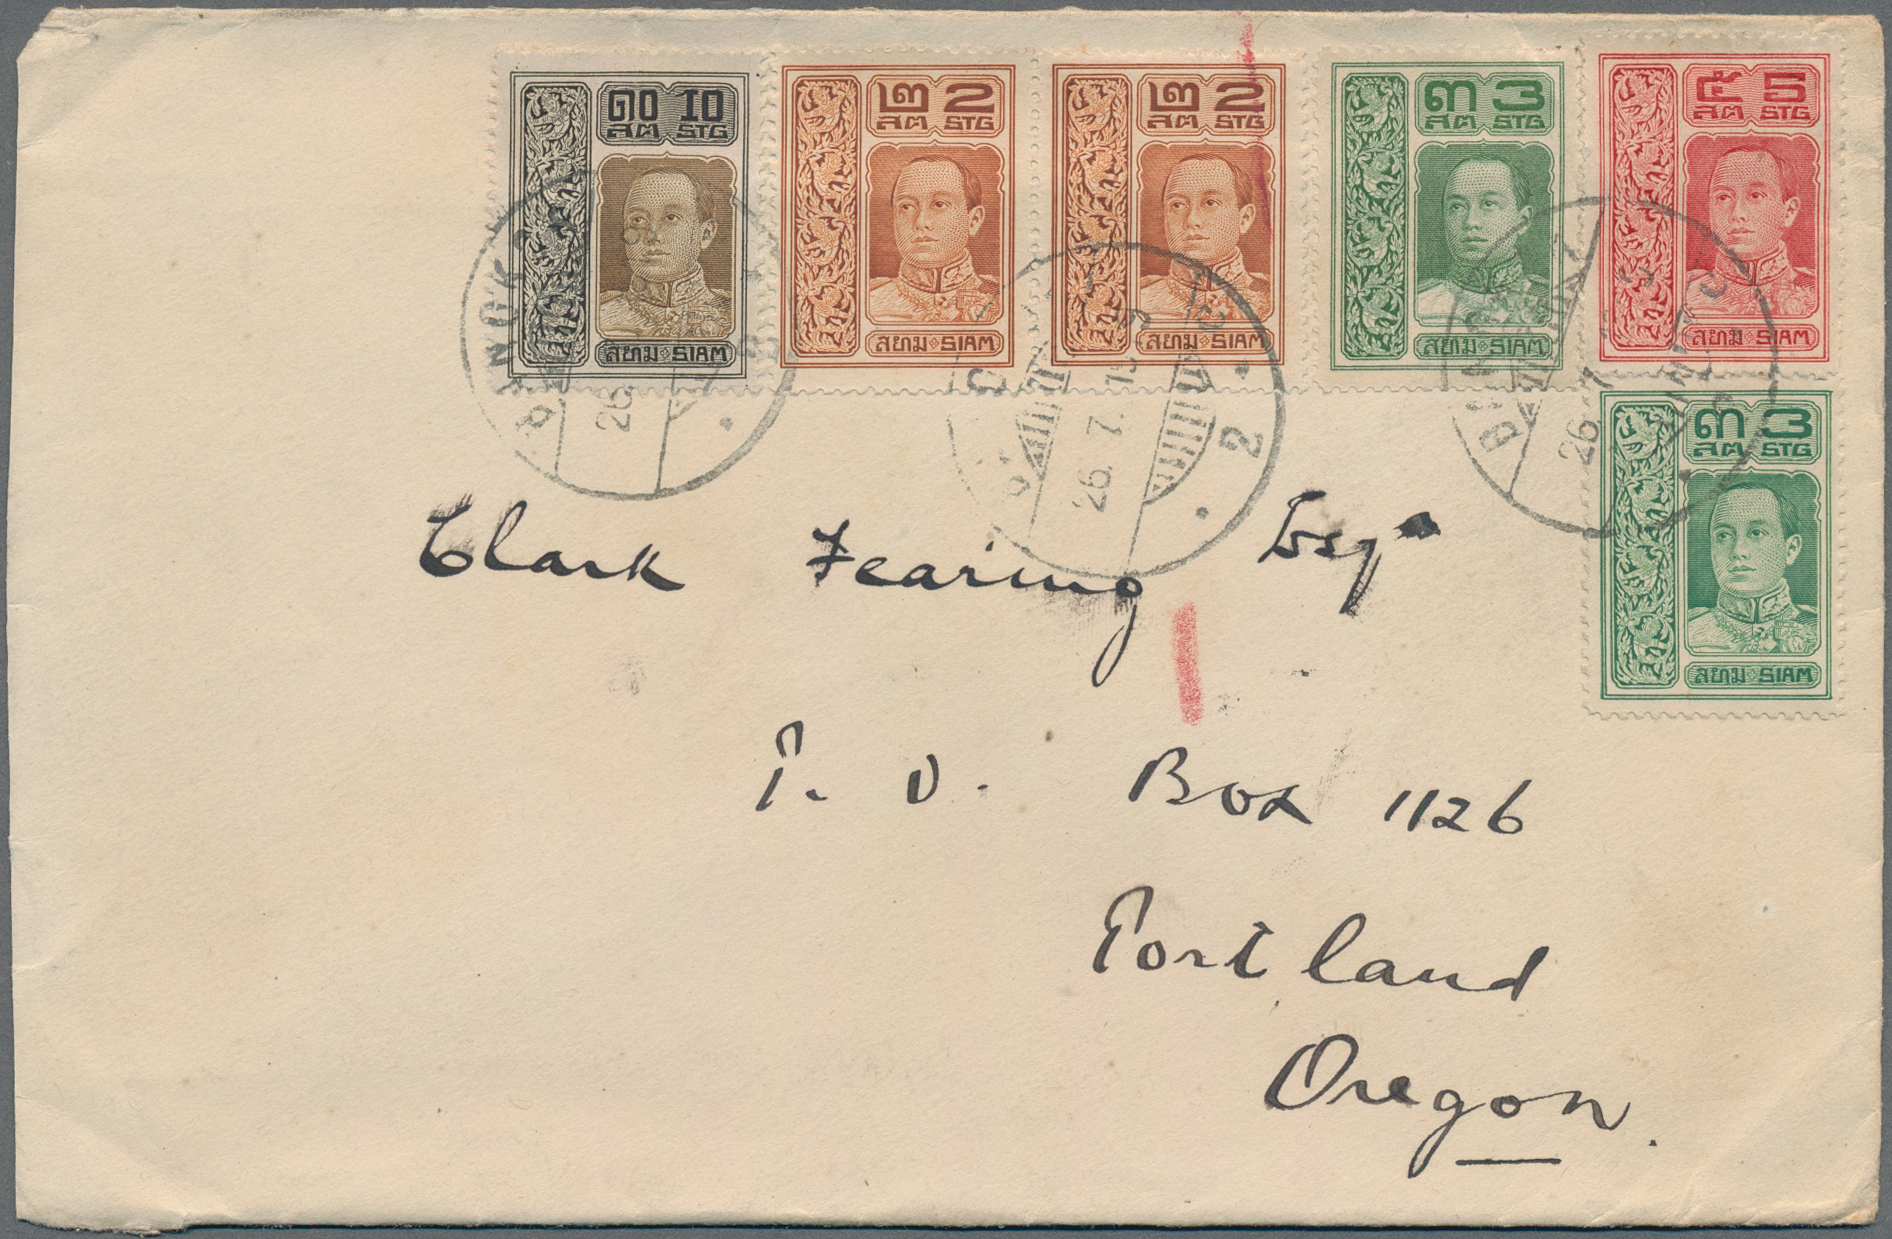 ๑๐ 10
สต STG
สยาม SIAM
๒ 2
สต STG
สยาม SIAM
๒ 2
สต STG
สยาม SIAM
๓ 3
สต STG
สยาม SIAM
๕ 5
สต STG
สยาม SIAM
๓ 3
สต STG
สยาม SIAM
BANGKOK
26.
26. 7. 15
2
26. 7
Clark Fearing Esqr
P. O. Box 1126
Portland
Oregon.